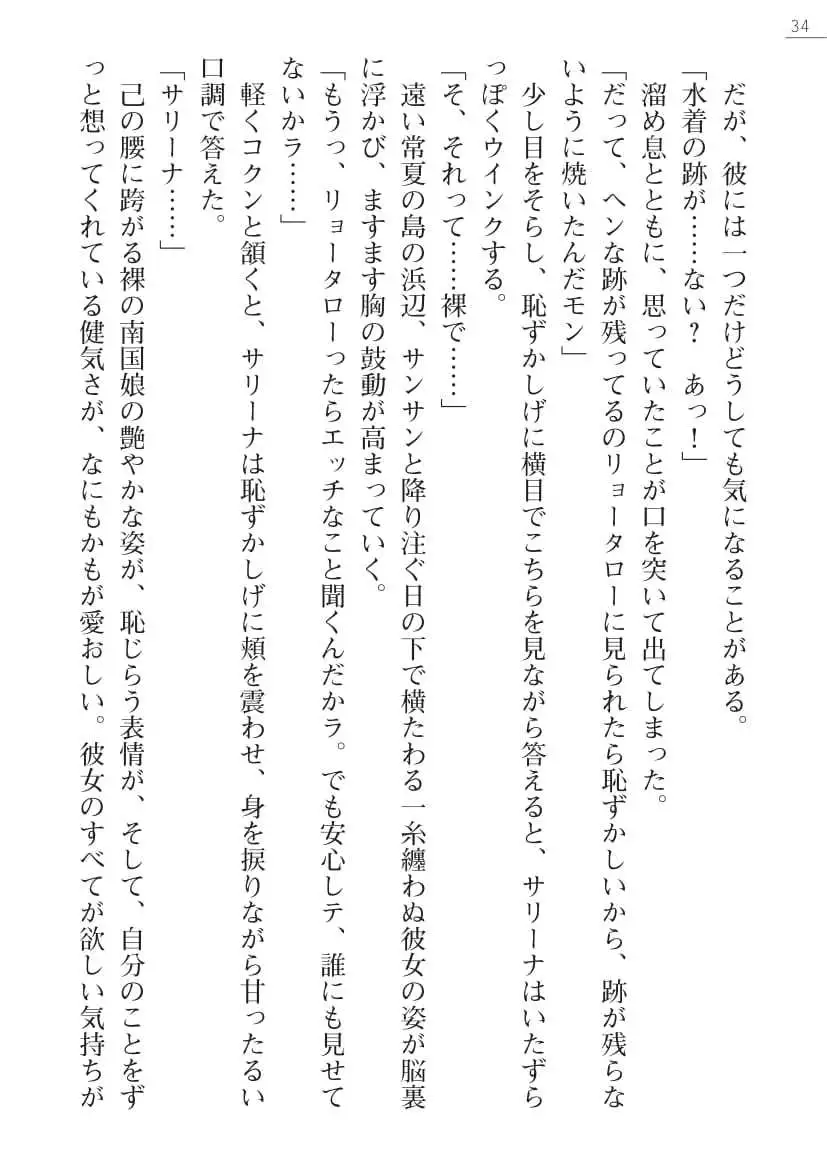 34
だが、彼には一つだけどうしても気になることがある。
「水着の跡が……ない?　あっ!」
溜め息とともに、思っていたことが口を突いて出てしまった。
「だって、ヘンな跡が残ってるのリョータローに見られたら恥ずかしいから、跡が残らな
いように焼いたんだモン」
少し目をそらし、恥ずかしげに横目でこちらを見ながら答えると、サリーナはいたずら
っぽくウインクする。
「そ、それって……裸で……」
遠い常夏の島の浜辺、サンサンと降り注ぐ日の下で横たわる一糸纏わぬ彼女の姿が脳裏
に浮かび、ますます胸の鼓動が高まっていく。
「もうっ、リョータローったらエッチなこと聞くんだかラ。でも安心しテ、誰にも見せて
ないかラ……」
軽くコクンと頷くと、サリーナは恥ずかしげに頬を震わせ、身を捩りながら甘ったるい
口調で答えた。
「サリーナ……」
己の腰に跨がる裸の南国娘の艶やかな姿が、恥じらう表情が、そして、自分のことをず
っと想ってくれている健気さが、なにもかもが愛おしい。彼女のすべてが欲しい気持ちが